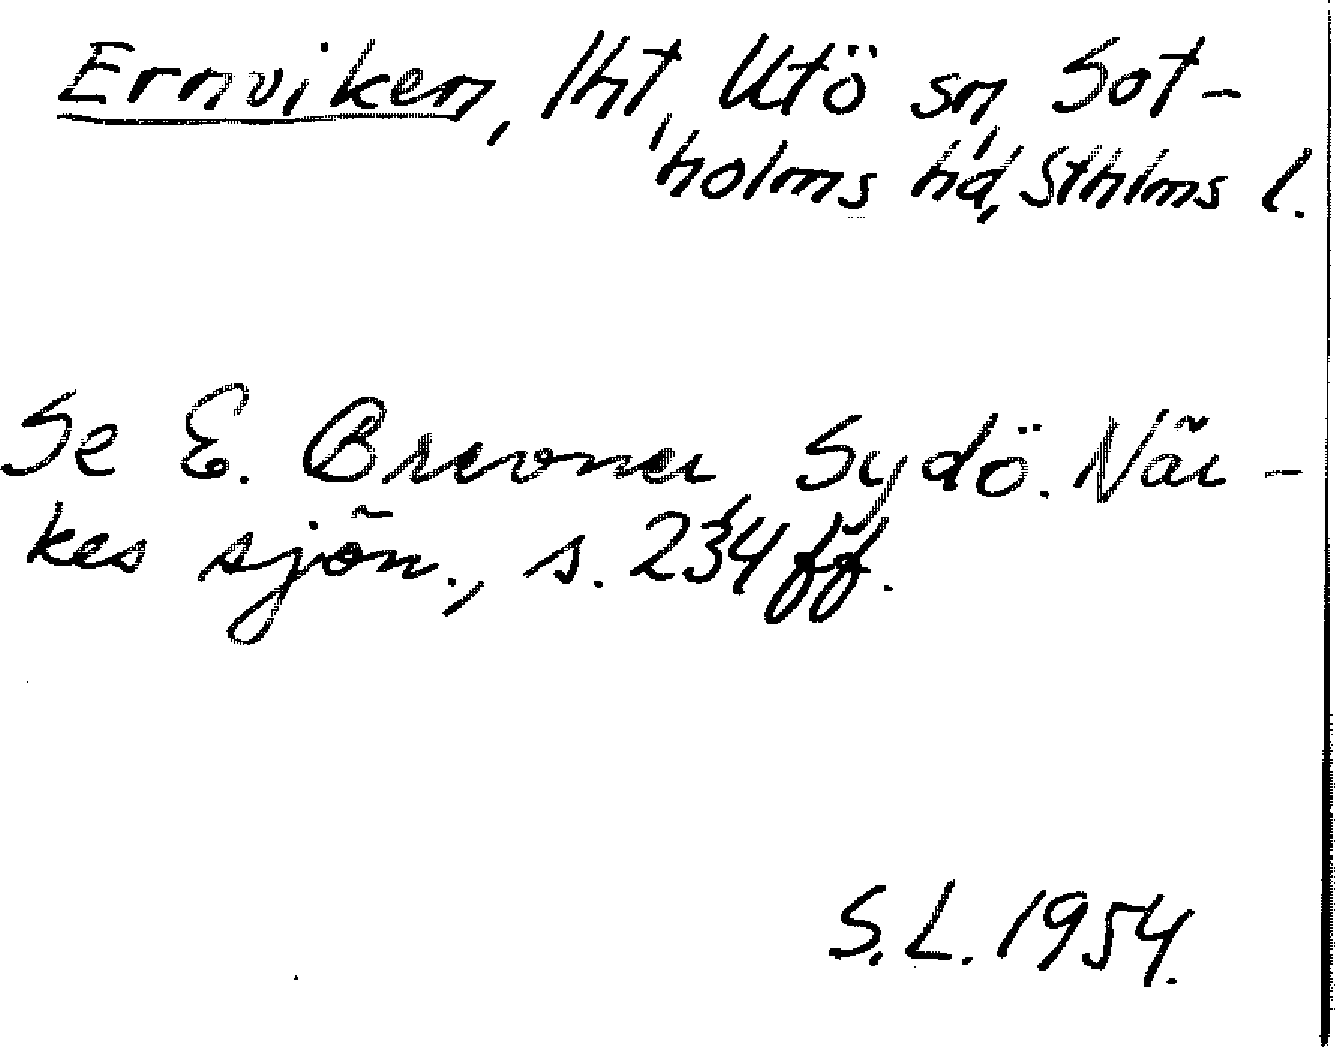 Ernviken, lht, Utö sn, Sot-
holms hd, Sthlms l.
Se E. Brevner, Sydö. När-
kes sjön., s. 234 ff.
S.L. 1954.